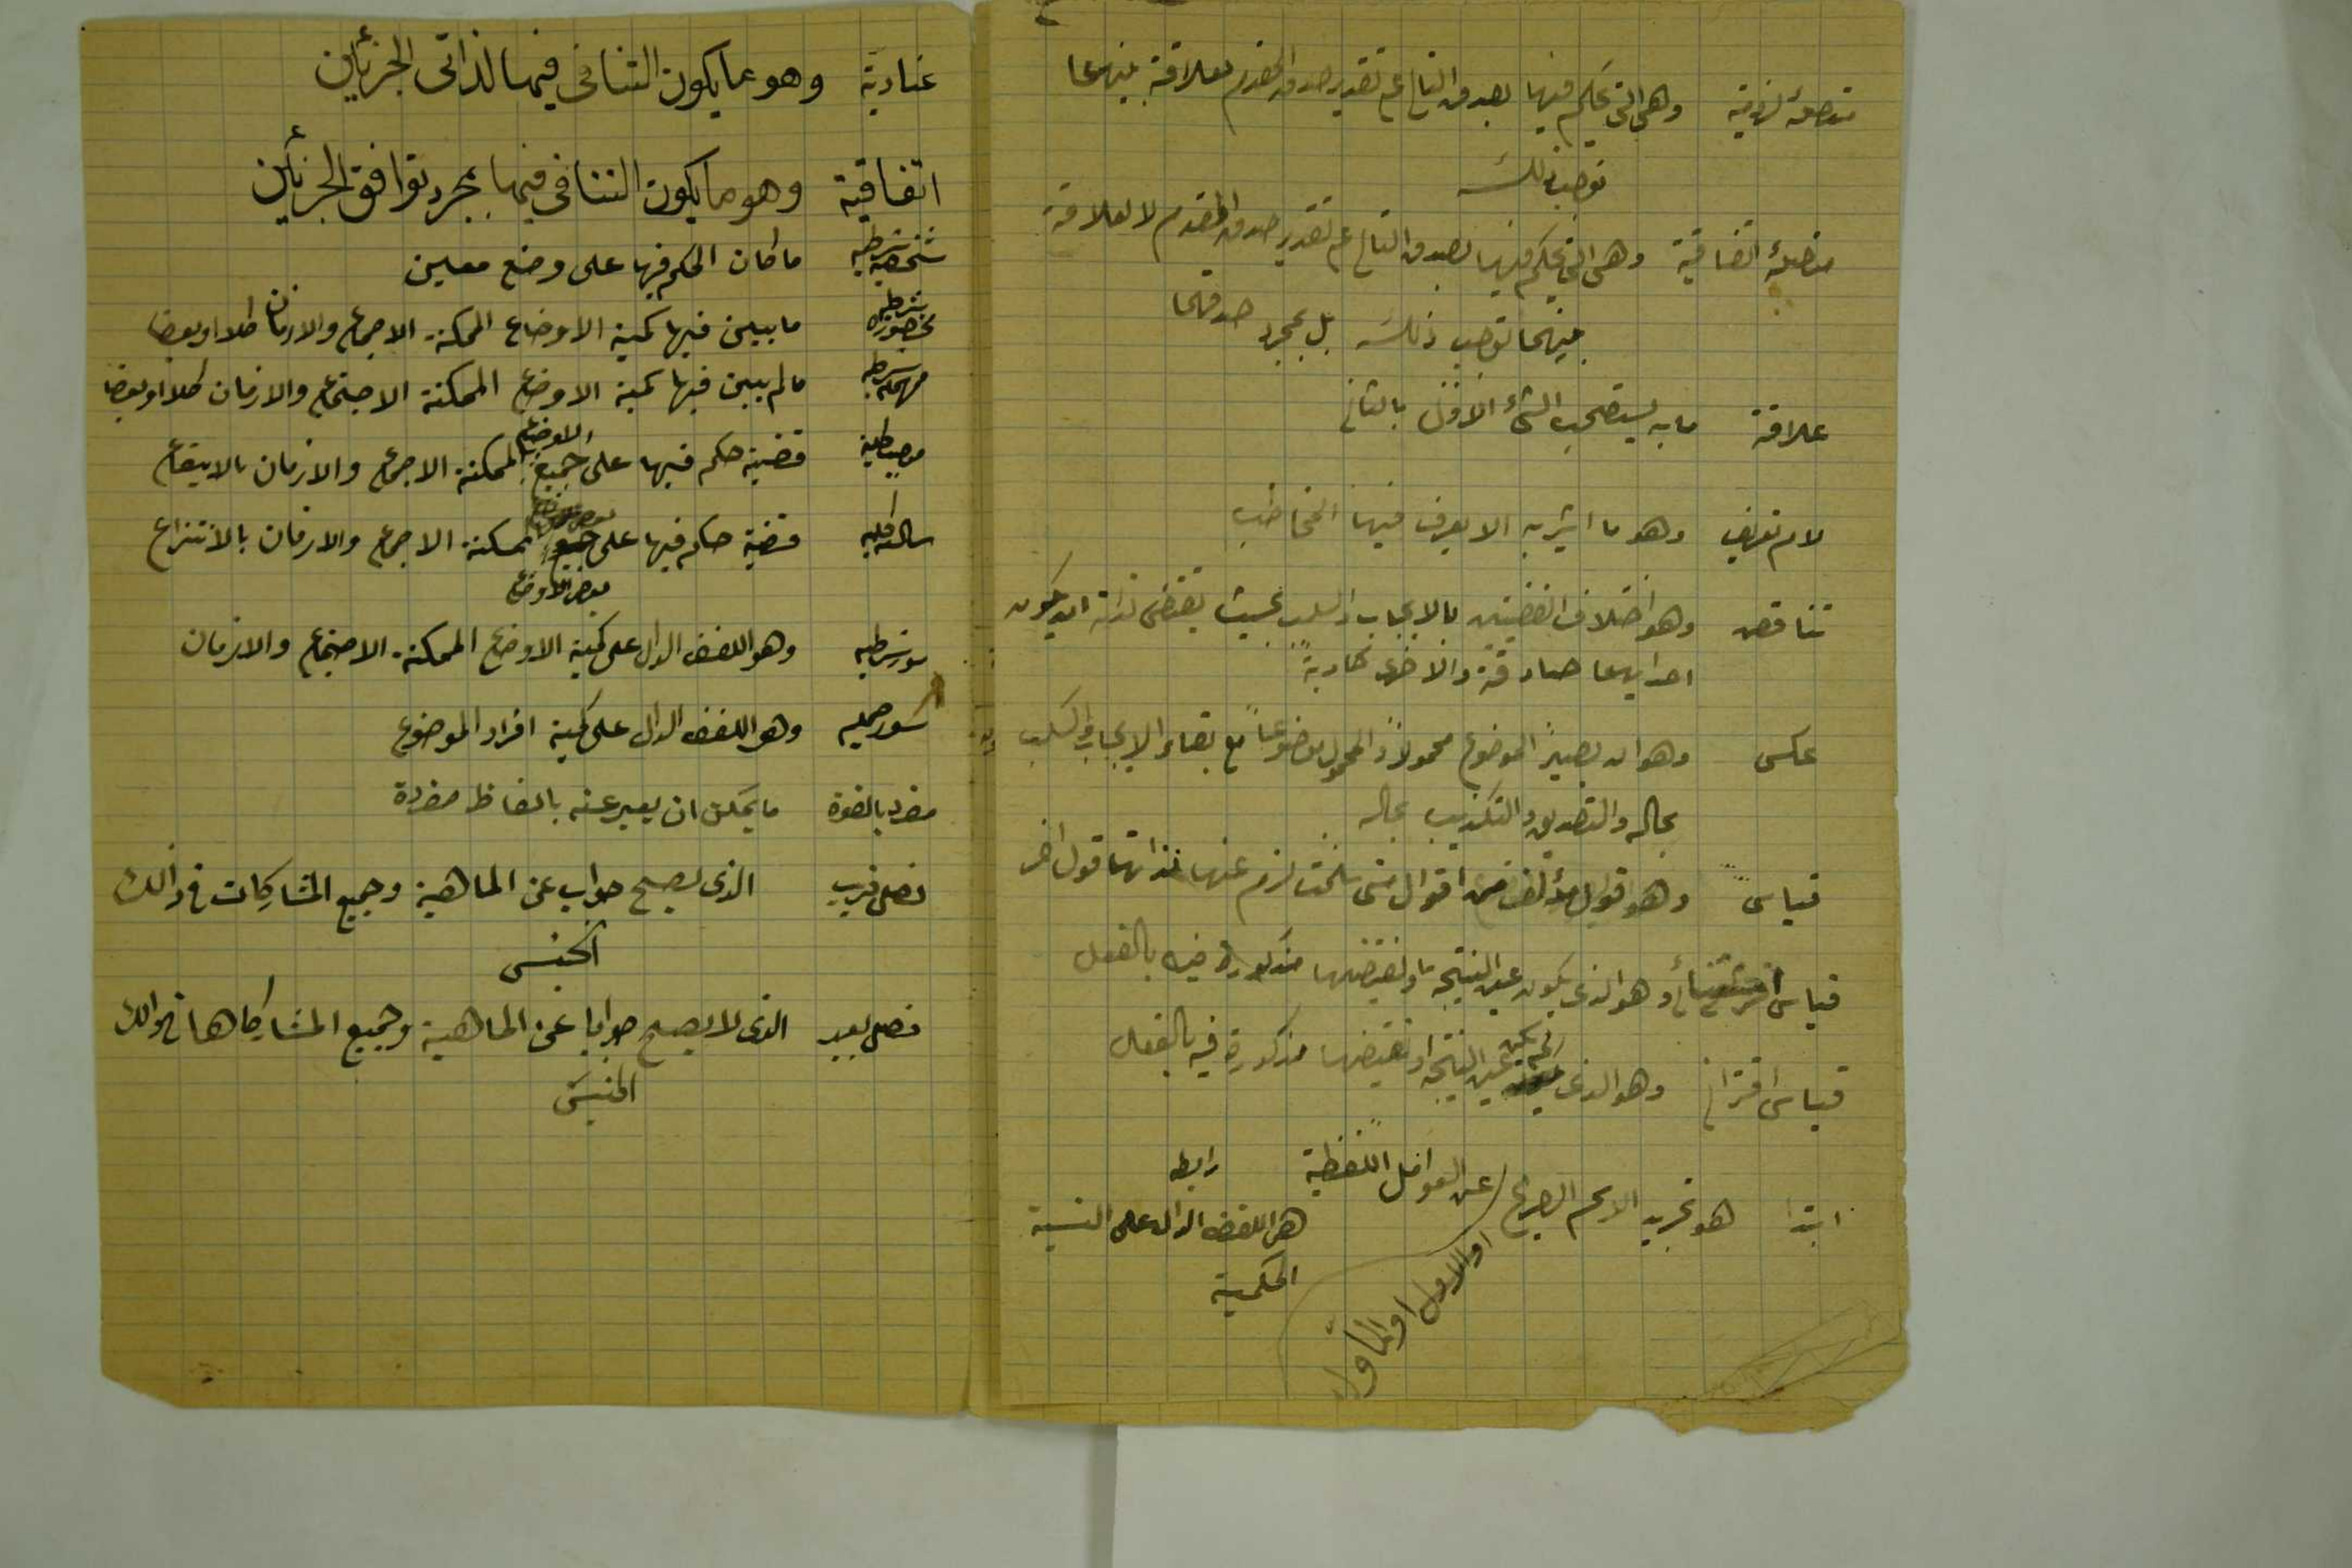 متصلة لزومية وهي التي يحكم فيها بصدق التالي على تقدير صدق المقدم لعلاقة بينهما
توجب ذلك
متصلة اتفاقية وهي التي يحكم فيها بصدق التالي على تقدير صدق المقدم لا لعلاقة
بينهما توجب ذلك بل بمجرد صدقهما
علاقة ما به يستصحب الشئ الاول بالثاني
لام تعريف وهو ما اشير به الا يعرف فيها المخاطب
تناقض وهو اختلاف القضيتين بالايجاب والسلب بحيث يقتضى لذاته ان يكون
احدايهما صادقة والاخرى كاذبة
عكس وهو ان يصير الموضوع محمولاً والمحمول موضوعاً مع بقاء الايجاب والسلب
بحاله والتصديق والتكذيب بحاله
قياس وهو قول مؤلف من اقوال متى سلمت لزم عنها لذاتها قول اخر
قياس استثنائى وهو الذى يكون عين النتيجة او نقيضها مذكورة فيه بالفعل
قياس اقترانى وهو الذى لم يكن عين النتيجة او نقيضها مذكورة فيه بالفعل
ابتدا هو تجريد الاسم الصريح عن العوامل اللفظية
او الاول او المأول
رابطه
هى اللفض الدال على النسبة
الحكمية
عنادية وهو ما يكون التنافى فيها لذاتى الجزئين
اتفاقية وهو ما يكون التنافى فيها بمجرد توافق الجزئين
شخصيه شرطيه ما كان الحكم فيها على وضع معين
محصوره شرطيه ما يبين فيها كمية الاوضاع الممكنة الاجماع والازمان كلا او بعضا
مهمله شرطيه مالم يبين فيها كمية الاوضاع الممكنة الاجتماع والازمان كلا او بعضا
قضية حكم فيها على جميع الاوضاع الممكنة الاجماع والازمان بالايقاع
سالبه كليه قضية حكم فيها على جميع بعض الاوضاع ممكنة الاجماع والازمان بالانتزاع
بعض الاوضاع
سور شرطيه وهو اللفض الدال على كمية الاوضاع الممكنة الاجتماع والازمان
سور حمليه وهو اللفض الدال على كمية افراد الموضوع
مفرد بالقوة ما يمكن ان يعبر عنه بالفاظ مفردة
فصل قريب الذى يصلح جواب عن الماهية وجميع المشاركات في ذالك
الجنس
فصل بعيد الذى لا يصلح جوابا عن الماهية وجميع المشاركاها في ذالك
الجنس